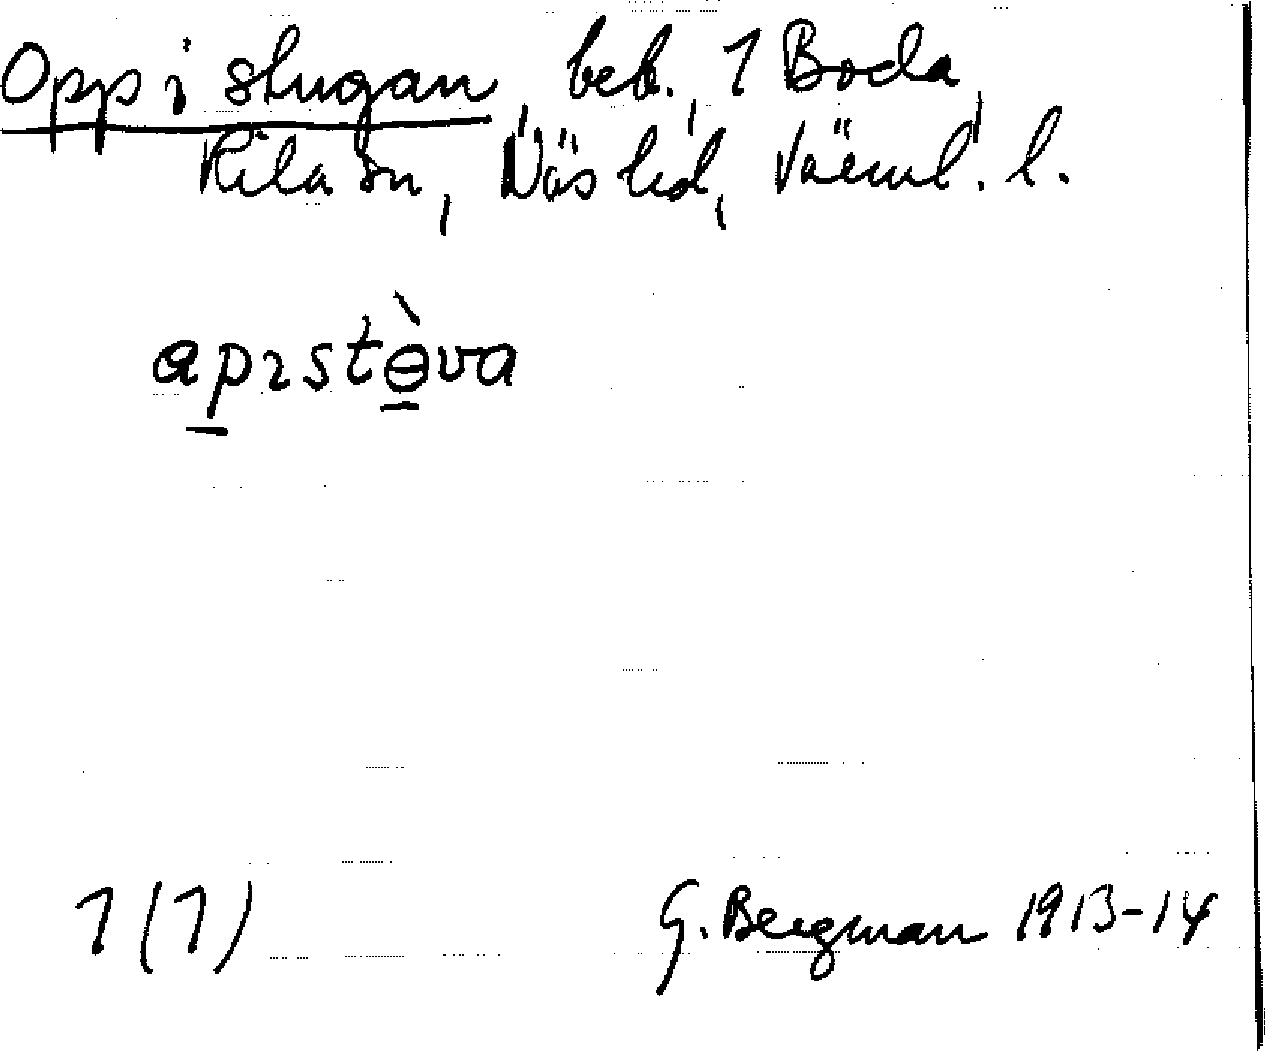 Opp i stugan, beb., 1 Boda,
Kila sn, Näs hd, Värml. l.
apıstɵ̀va
1 (1)
G. Bergman 1913-14